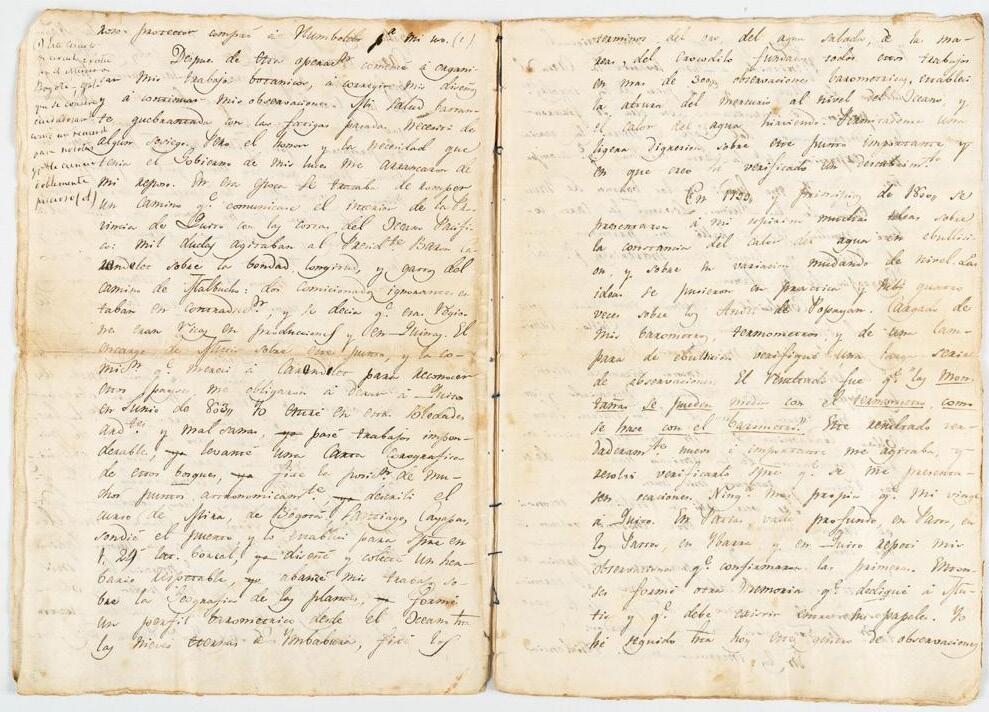 compró á Humboldt pa mi uso. (1)
Despues de esta operacn comencé á organi-
zar mis trabajos botanicos, á corregir mis diseños,
y á continuar mis observaciones. Mi salud bastan-
te quebrantada con las fatigas pasadas, necesitaba
algun sosiego. Pero el honor y la necesidad que
tenia el Gobierno de mis luces me arrancaron de
mi reposo. En esa epoca se trataba de romper
un camino qe comunicase el interior de la Pro-
vincia de Quito con las costas del Oceano Pacifi-
co: mil dudas agitaban al Presidte Baron de Ca-
rondelet sobre la bondad, longitud, y gastos del
camino de Malbucho: dos comisionados ignorantes es-
taban en contradicn y se decia qe esas Regio-
nes eran ricas en producciones y en Quinas. El
encargo de Mutis sobre este punto, y la co-
misn qe merecí á Carondelet para reconocer
estos payses, me obligaron á dexar á Quito
en Junio de 803,, Yo entré en esas soledades
ardtes y mal sanas, pasé trabajos impon-
derables, levanté una Carta Corografica
de esos bosques, fixé la posicn de mu-
chos puntos astronomicamte describí el
curso de Mira, de Bogotá, Santiago, Cayapas,
sondié el puerto y lo establecí para spre en
1. 29 lat. boreal, diseñé y colecté un her-
bario respetable, abanzé mis trabajos so-
bre la Geografia de las plantas, formé
un perfil barometrico desde el Oceano hta
las nieves eternas de Imbabura, fixé los
terminos del oro, del agua salada, de la ma-
rea, del crocodilo fundando todos estos trabajos
en mas de 300,, observaciones barometricas, establecí
la altura del mercurio al nivel del Oceano, y
el calor del agua hirviendo. Permitaseme una
ligera digresion sobre este punto importante y
en que creo he verificado un descubrimto
En 1799,, y principios de 1800,, se
presentaron á mi espiritu muchas ideas sobre
la constancia del calor del agua en ebullici-
on, y sobre su variacion mudando de nivel. Las
ideas se pusieron en practica y subí quatro
veces sobre los Andes de Popayan. Cargado de
mis barometros, termometros y de una lam-
para de ebullicion verifiqué una larga serie
de observaciones. El resultado fue qe las Mon-
tañas se pueden medir con el termometro, como
se hace con el barometro. Este resultado ver-
daderamte nuevo é importante me agitaba, y
resolví verificarlo spre qe se me presenta-
sen ocaciones. Ningna mas propia qe mi viage
á Quito. En Patía, valle profundo, en Pasto, en
los Pastos, en Ibarra y en Quito repetí mis
observaciones qe confirmaron las primeras. Enton-
ses formé otra Memoria qe dediqué á Mu-
tis y qe debe existir entre mis papeles. Yo
he seguido hta hoy este genero de observaciones